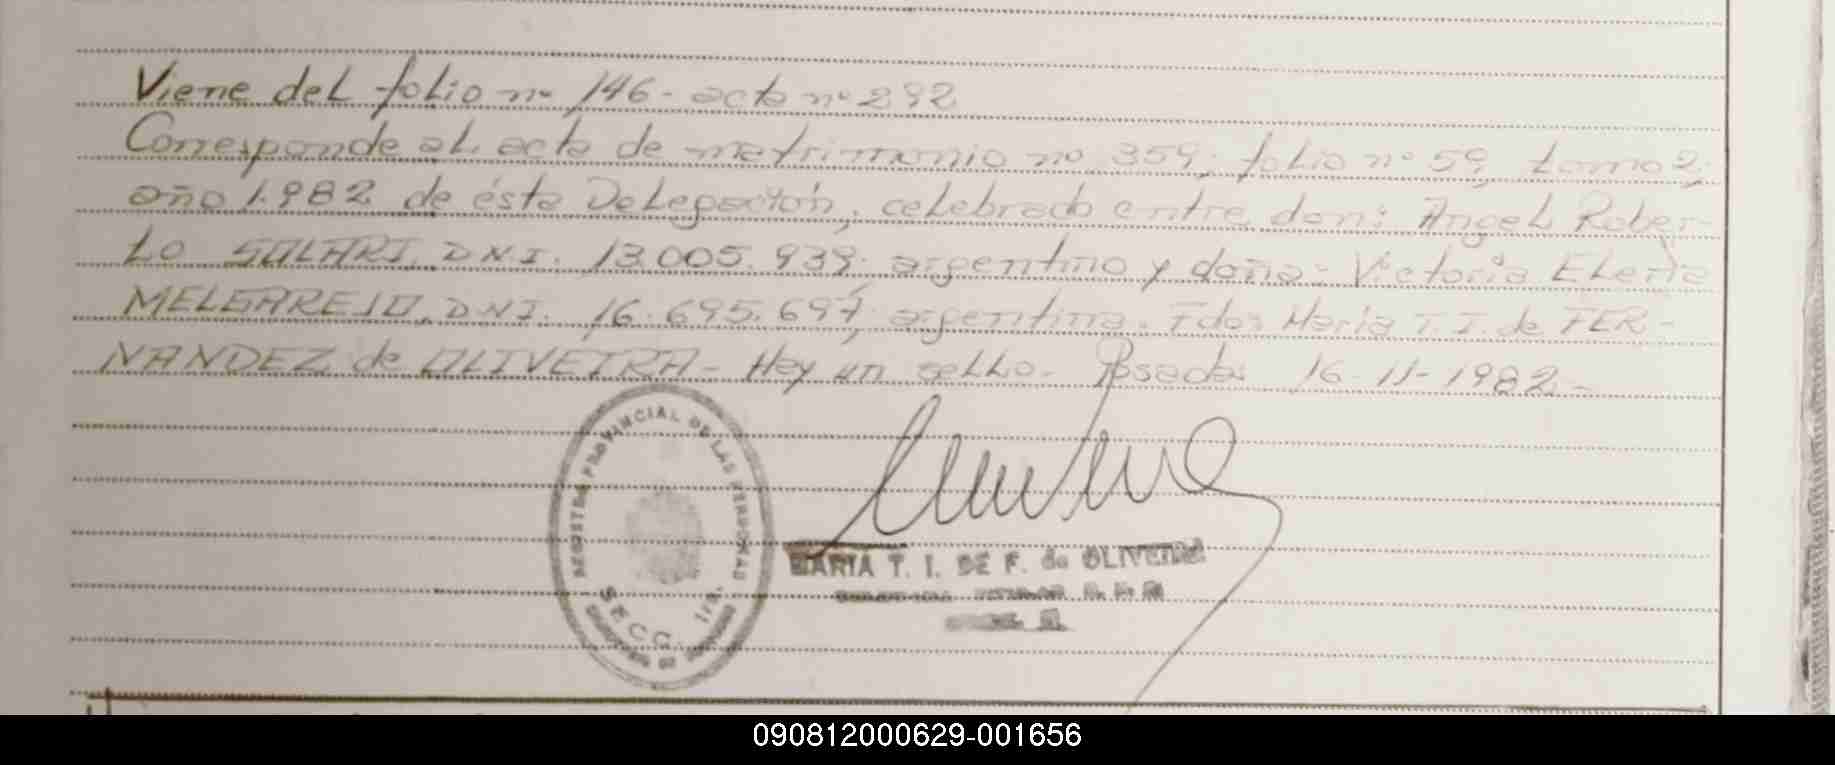 Viene del folio nº 146 - acta nº 292
Corresponde al acta de matrimonio nº 359, folio nº 59, tomo 2,
año 1.982 de ésta Delegación, celebrado entre don: Angel Rober-
to SOLARI, D.N.I. 13.005.939, argentino y doña: Victoria Elena
MELGAREJO, D.N.I. 16.695.697, argentina. Fdo: Maria T. I. de FER-
NANDEZ de OLIVEIRA - Hay un sello - Posadas 16-11-1982 -
REGISTRO PROVINCIAL DE LAS PERSONAS
SECC. 1ra.
MARIA T. I. DE F. de OLIVEIRA
TITULAR
090812000629-001656